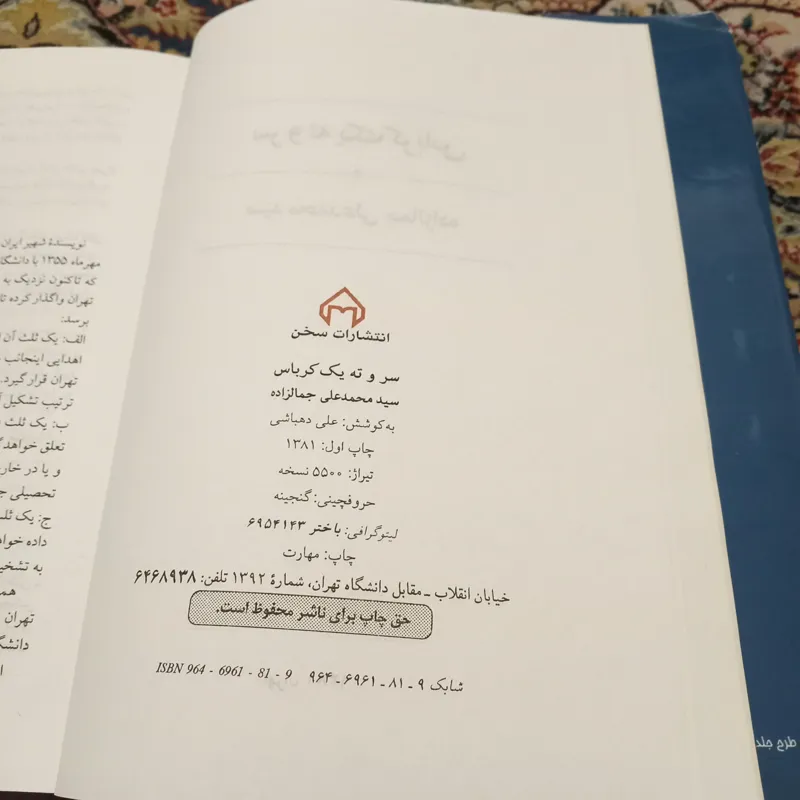 انتشارات سخن
سر و ته یک کرباس
سید محمدعلی جمالزاده
به‌کوشش: علی دهباشی
چاپ اول: ۱۳۸۱
تیراژ: ۵۵۰۰ نسخه
حروفچینی: گنجینه
لیتوگرافی: باختر ۶۹۵۴۱۴۳
چاپ: مهارت
خیابان انقلاب ـ مقابل دانشگاه تهران، شمارهٔ ۱۳۹۲ تلفن: ۶۴۶۸۹۳۸
حق چاپ برای ناشر محفوظ است.
شابک ۹ ـ ۸۱ ـ ۶۹۶۱ ـ ۹۶۴ ISBN 964 - 6961 - 81 - 9
نویسندهٔ شهیر ایران
مهرماه ۱۳۵۵ با دانشگا
که تاکنون نزدیک به
تهران واگذار کرده تا
برسد:
الف: یک ثلث آن
اهدایی اینجانب
تهران قرار گیرد.
ترتیب تشکیل
ب: یک ثلث
تعلق خواهد
و یا در خار
تحصیلی
ج: یک ثلث
داده خواهد
به تشخیص
هم
تهران
دانشگ
طرح جلد